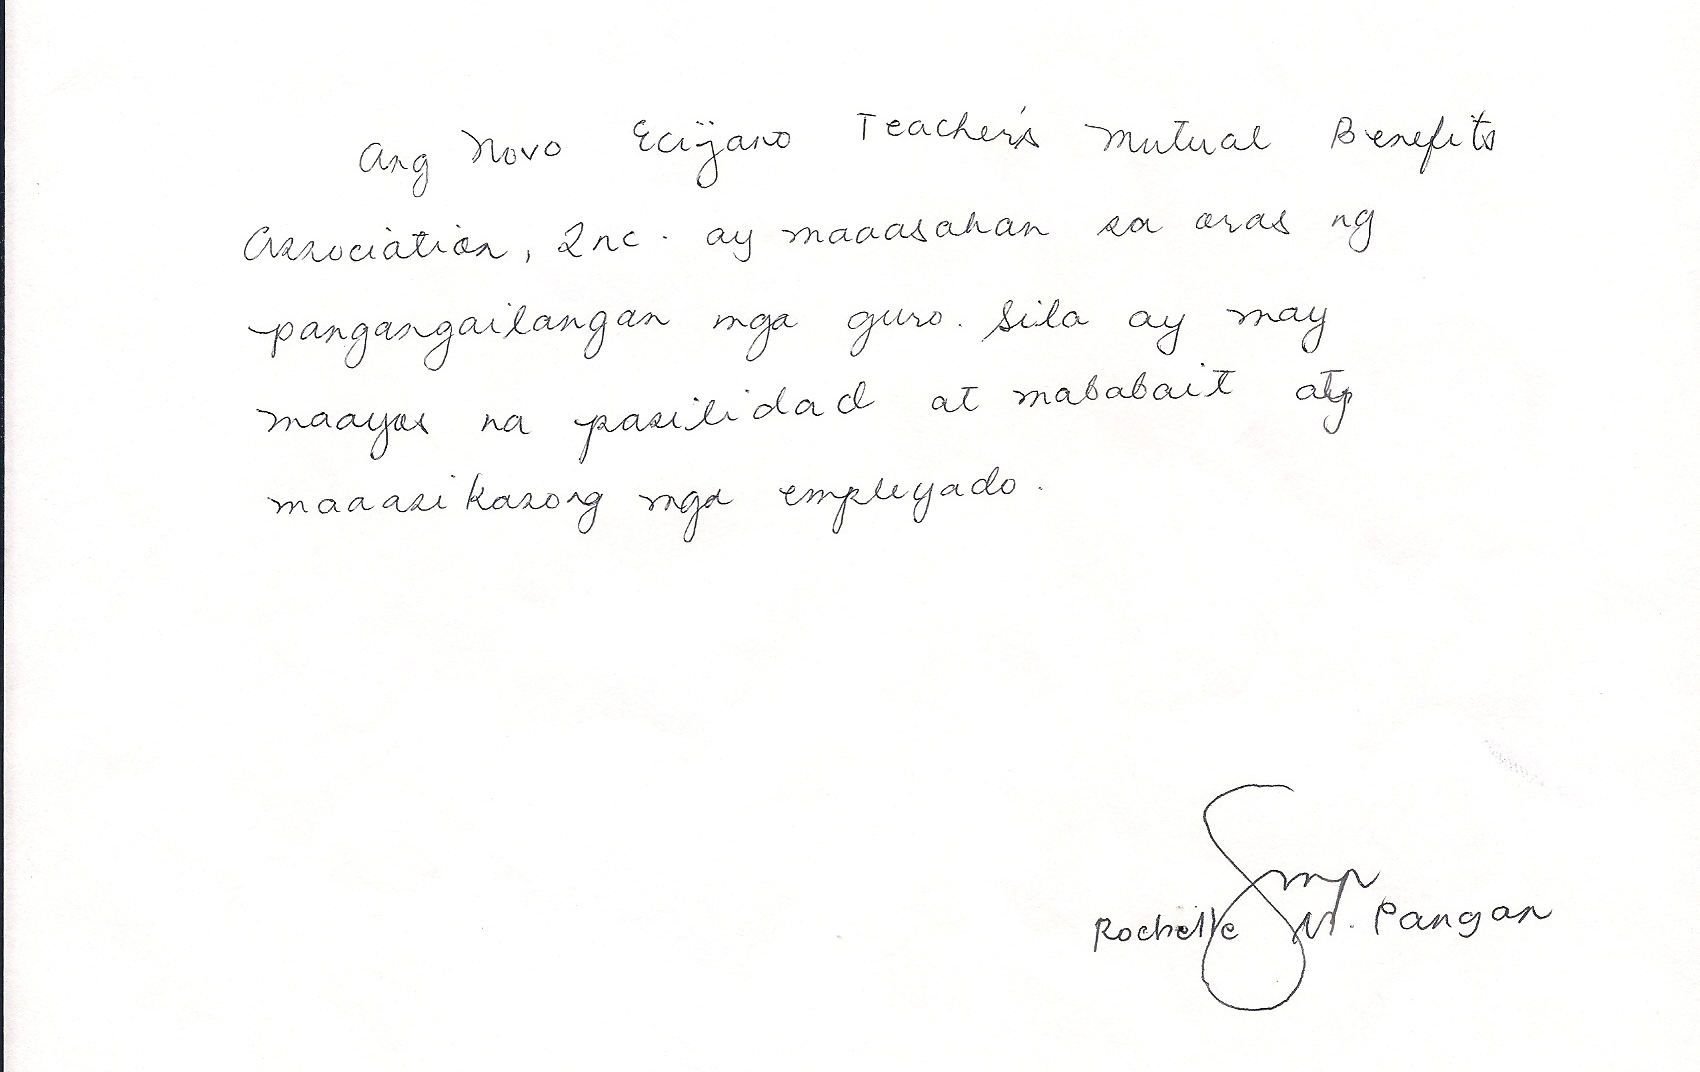 Ang Novo Ecijano Teacher's Mutual Benefits
Association, Inc. ay maaasahan sa oras ng
pangangailangan mga guro. Sila ay may
maayos na pasilidad at mababait at
maaasikasong mga empleyado.
Rochelle M. Pangan